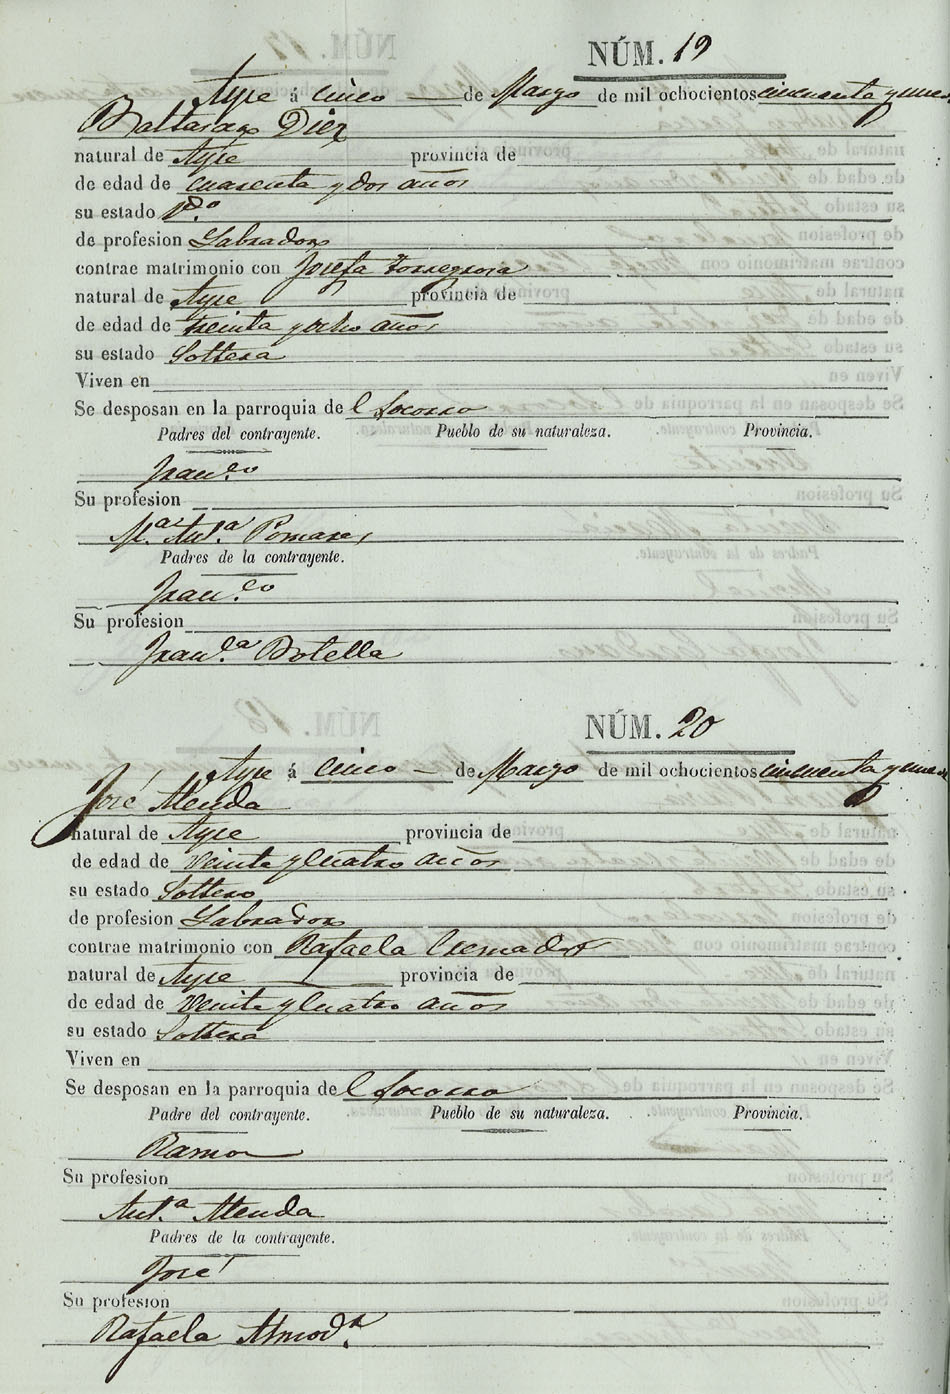 NÚM. 19
Aspe á cinco de Marzo de mil ochocientos cincuenta y nueve
Baltasar Diez
natural de Aspe provincia de
de edad de cuarenta y dos años
su estado V.do
de profesion Labrador
contrae matrimonio con Josefa Torregrosa
natural de Aspe provincia de
de edad de treinta y ocho años
su estado Soltera
Viven en
Se desposan en la parroquia de l Socorro
Padres del contrayente. Pueblo de su naturaleza. Provincia.
Fran.co
Su profesion
M.a Ant.a Pomares
Padres de la contrayente.
Fran.co
Su profesion
Fran.ca Botella
NÚM. 20
Aspe á cinco de Marzo de mil ochocientos cincuenta y nueve
José Alenda
natural de Aspe provincia de
de edad de veinte y cuatro años
su estado Soltero
de profesion Labrador
contrae matrimonio con Rafaela Cremades
natural de Aspe provincia de
de edad de veinte y cuatro años
su estado Soltera
Viven en
Se desposan en la parroquia de l Socorro
Padre del contrayente. Pueblo de su naturaleza. Provincia.
Ramon
Su profesion
Ant.a Alenda
Padres de la contrayente.
José
Su profesion
Rafaela